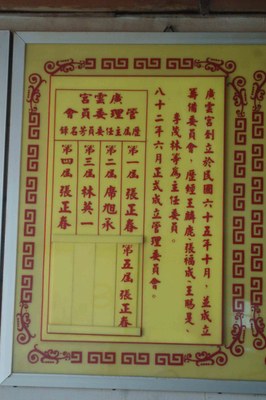 廣雲宮創立於民國六十五年十月，並成立
籌備委員會，歷經王麟鹿、張福成、王賜是、
李茂林等為主任委員。
八十二年六月正式成立管理委員會。
廣雲宮
管理委員會
歷屆主任委員芳名錄
第一屆 張正春
第二屆 席旭承
第三屆 林英一
第四屆 張正春
第五屆 張正春